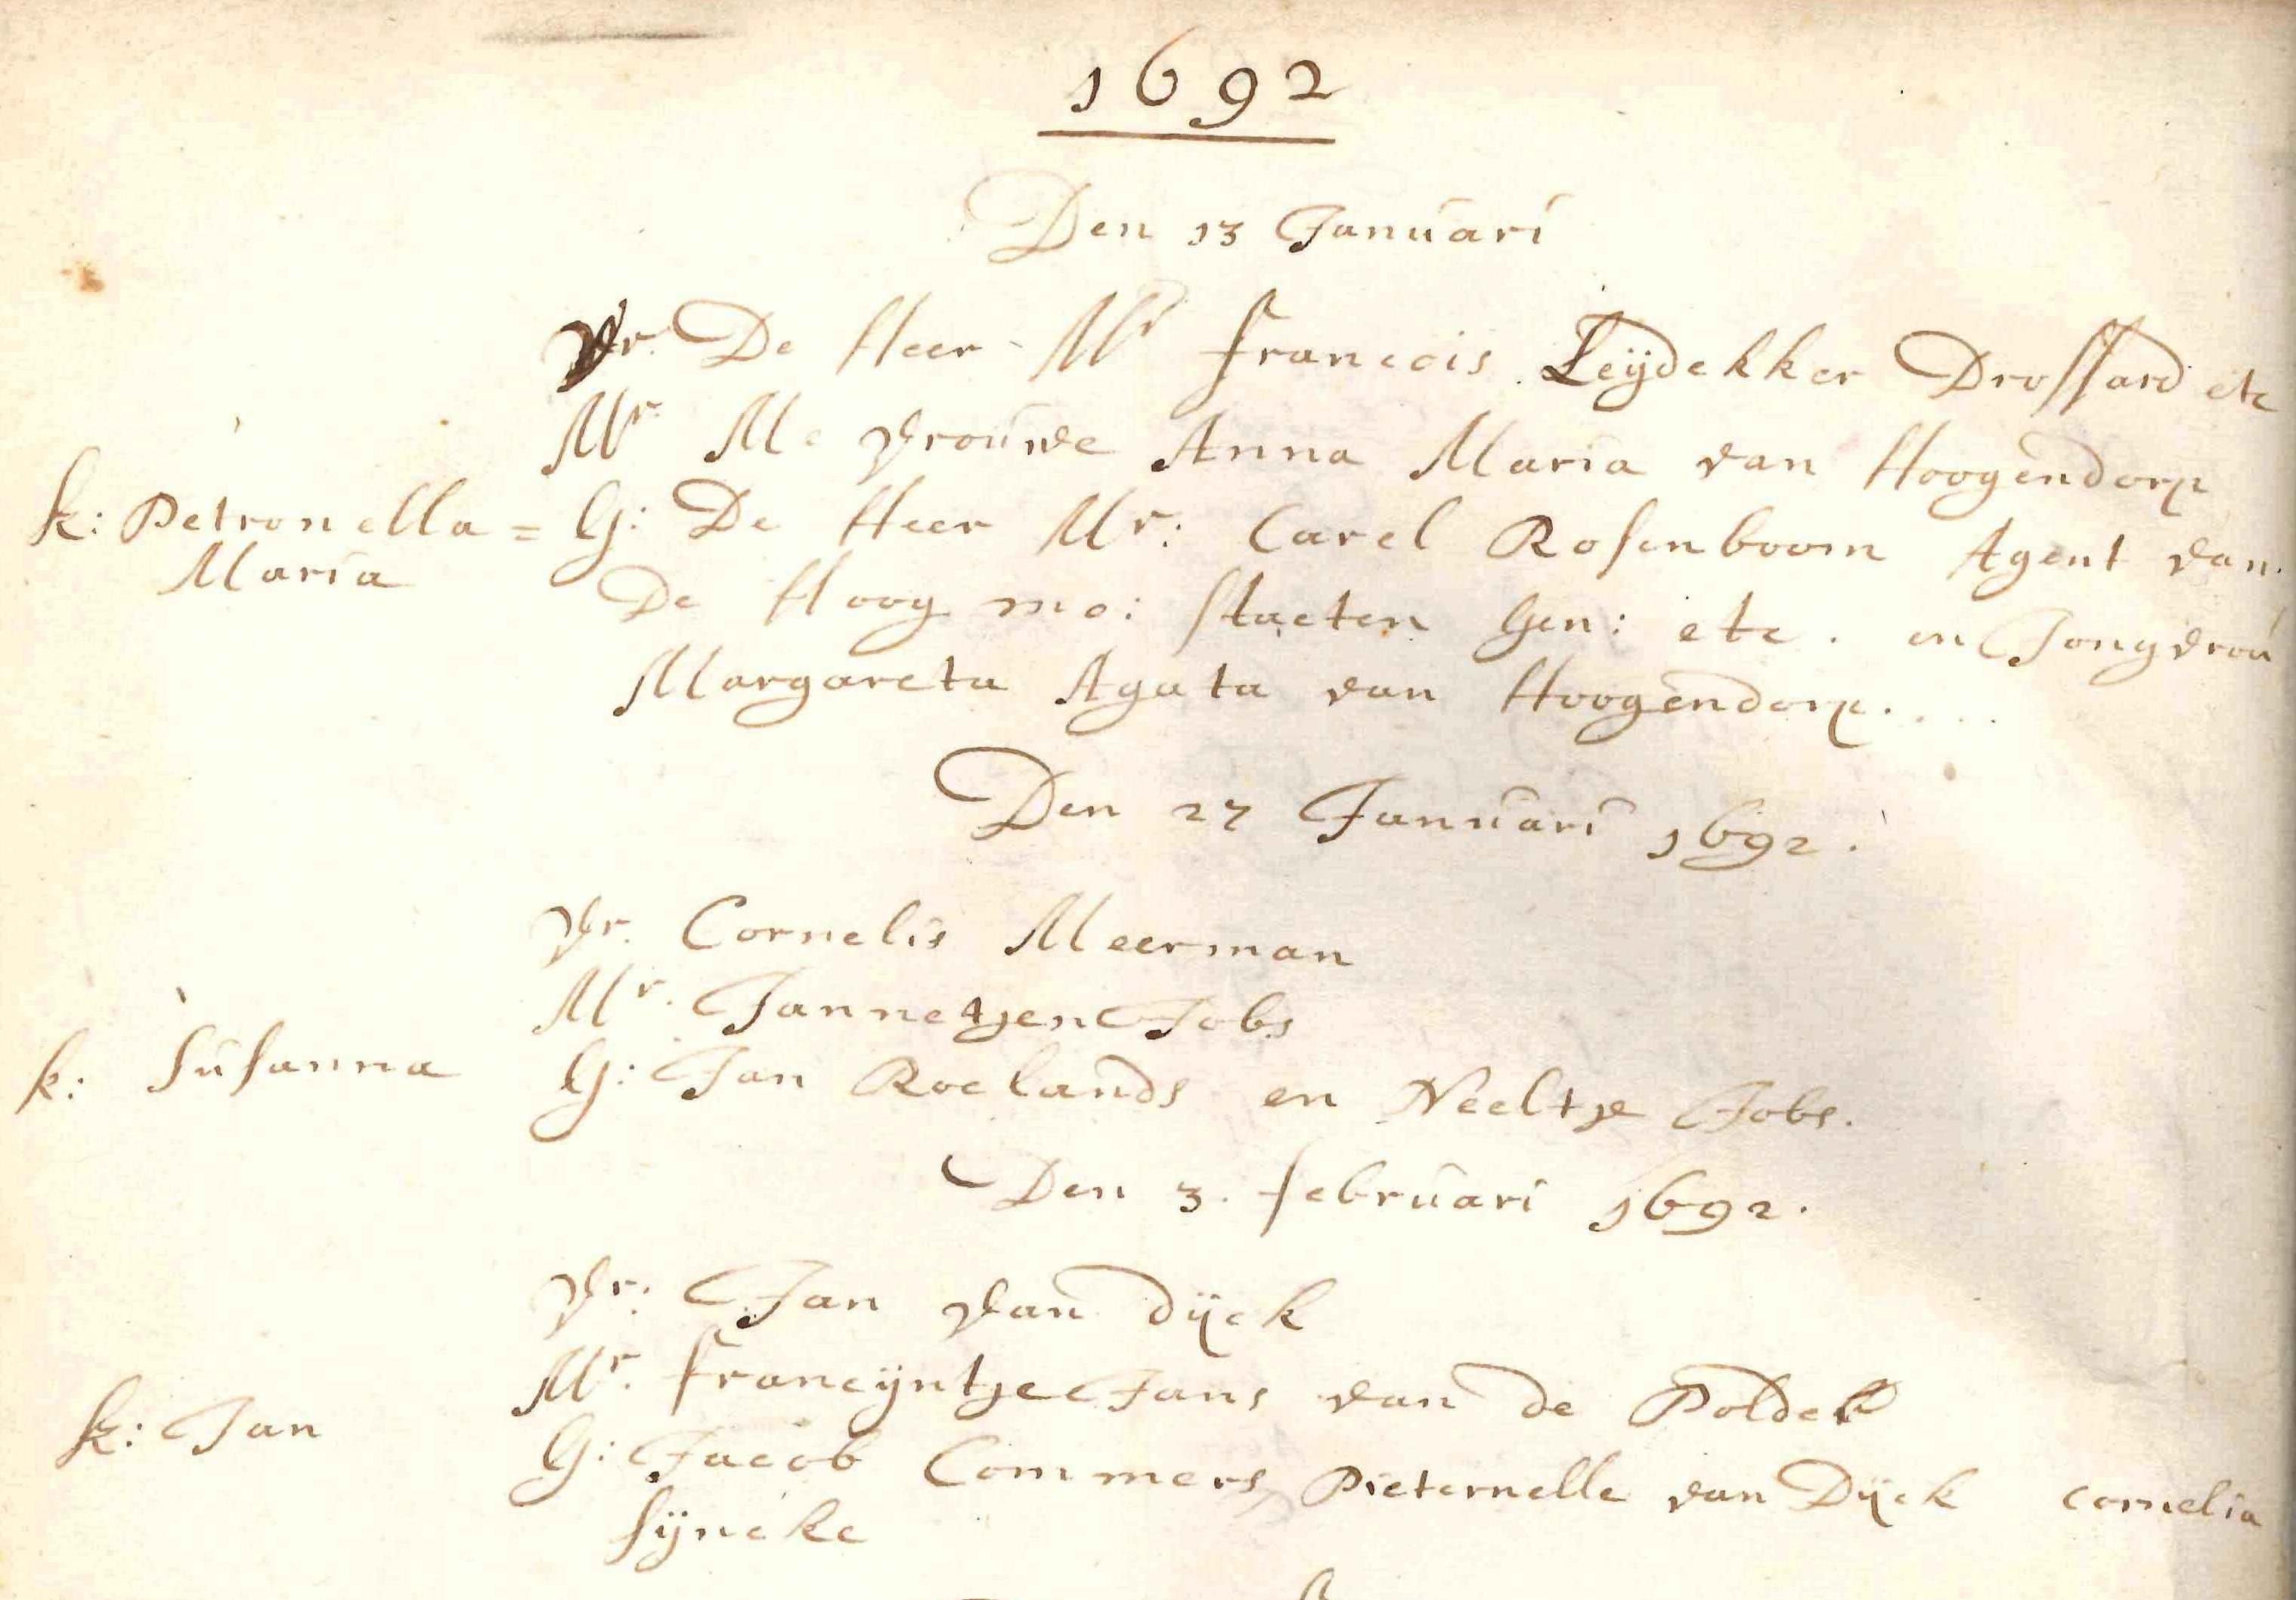 1692
Den 13 Januari
Vr. De Heer Mr Francois Leijdekker Drossard etc
Mr Me vrouwe Anna Maria van Hoogendorp
k: Petronella = G: De Heer Mr: Carel Rosenboom Agent van
Maria De Hoog mo: Staeten Gen: etc. en Jongvrou
Margareta Agata van Hoogendorp....
Den 27 Januari 1692.
Vr. Cornelis Meerman
Mr. Jannetjen Jobs
k: Susanna G: Jan Roelands en Neeltje Jobs.
Den 3. februari 1692.
Vr: Jan van dijck
Mr. francijntje Jans van de Polder
k: Jan G: Jacob Commers, Pieternelle van Dijck cornelia
sijncke